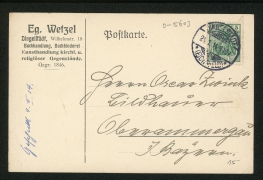 Eg. Wetzel
Dingelstädt, Wilhelmstr. 18
Buchhandlung, Buchbinderei
Kunsthandlung kirchl. u.
religiöser Gegenstände.
Gegr. 1856.
Postkarte.
Herrn Oscar Zwink
Bildhauer
Oberammergau
i/Bayern
15